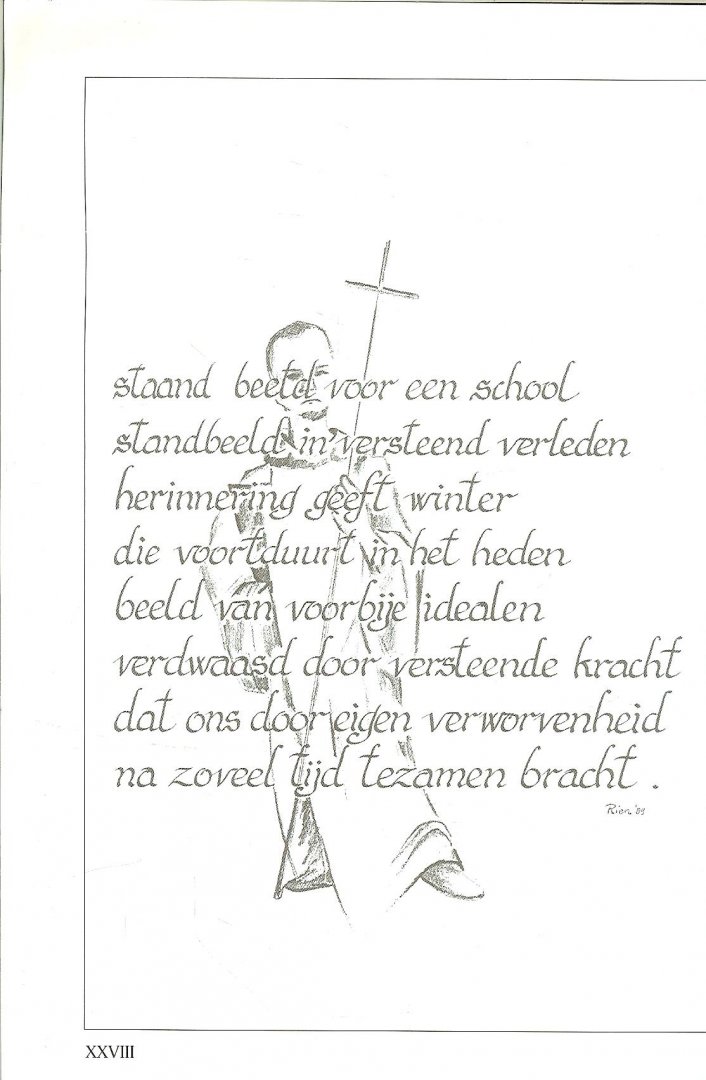 staand beeld voor een school
standbeeld in versteend verleden
herinnering geeft winter
die voortduurt in het heden
beeld van voorbije idealen
verdwaasd door versteende kracht
dat ons door eigen verworvenheid
na zoveel tijd tezamen bracht .
Rien '89
XXVIII